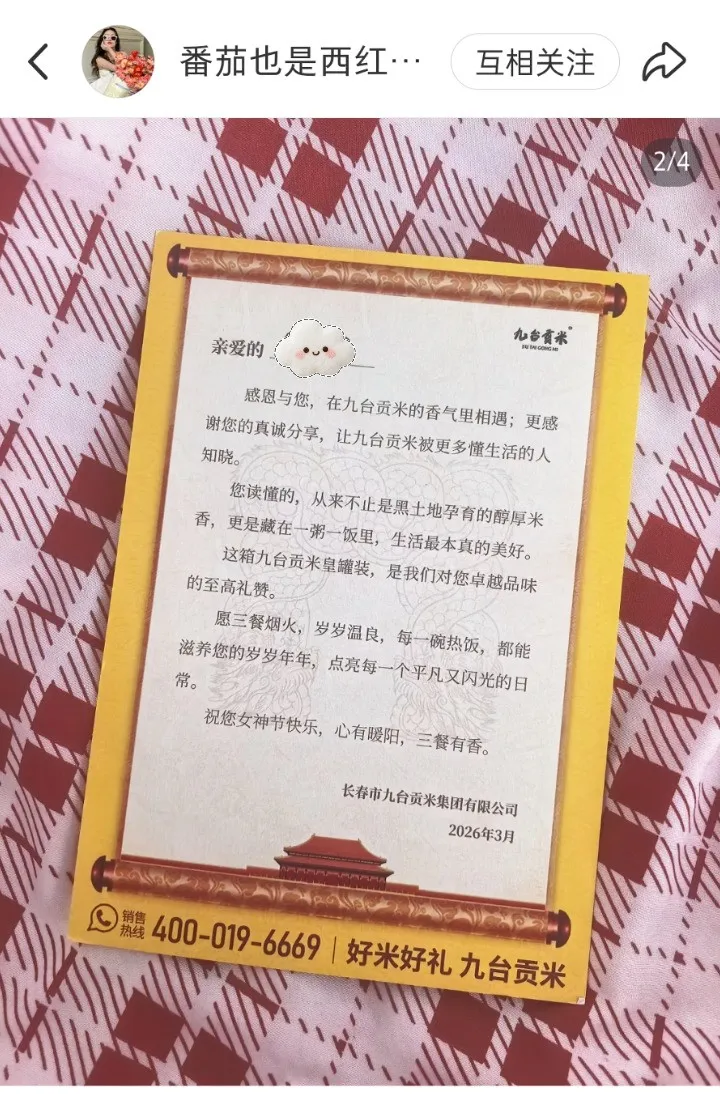 番茄也是西红…
互相关注
2/4
九台贡米
JIU TAI GONG MI
亲爱的
感恩与您，在九台贡米的香气里相遇；更感
谢您的真诚分享，让九台贡米被更多懂生活的人
知晓。
您读懂的，从来不止是黑土地孕育的醇厚米
香，更是藏在一粥一饭里，生活最本真的美好。
这箱九台贡米皇罐装，是我们对您卓越品味
的至高礼赞。
愿三餐烟火，岁岁温良，每一碗热饭，都能
滋养您的岁岁年年，点亮每一个平凡又闪光的日
常。
祝您女神节快乐，心有暖阳，三餐有香。
长春市九台贡米集团有限公司
2026年3月
销售
热线
400-019-6669 | 好米好礼 九台贡米